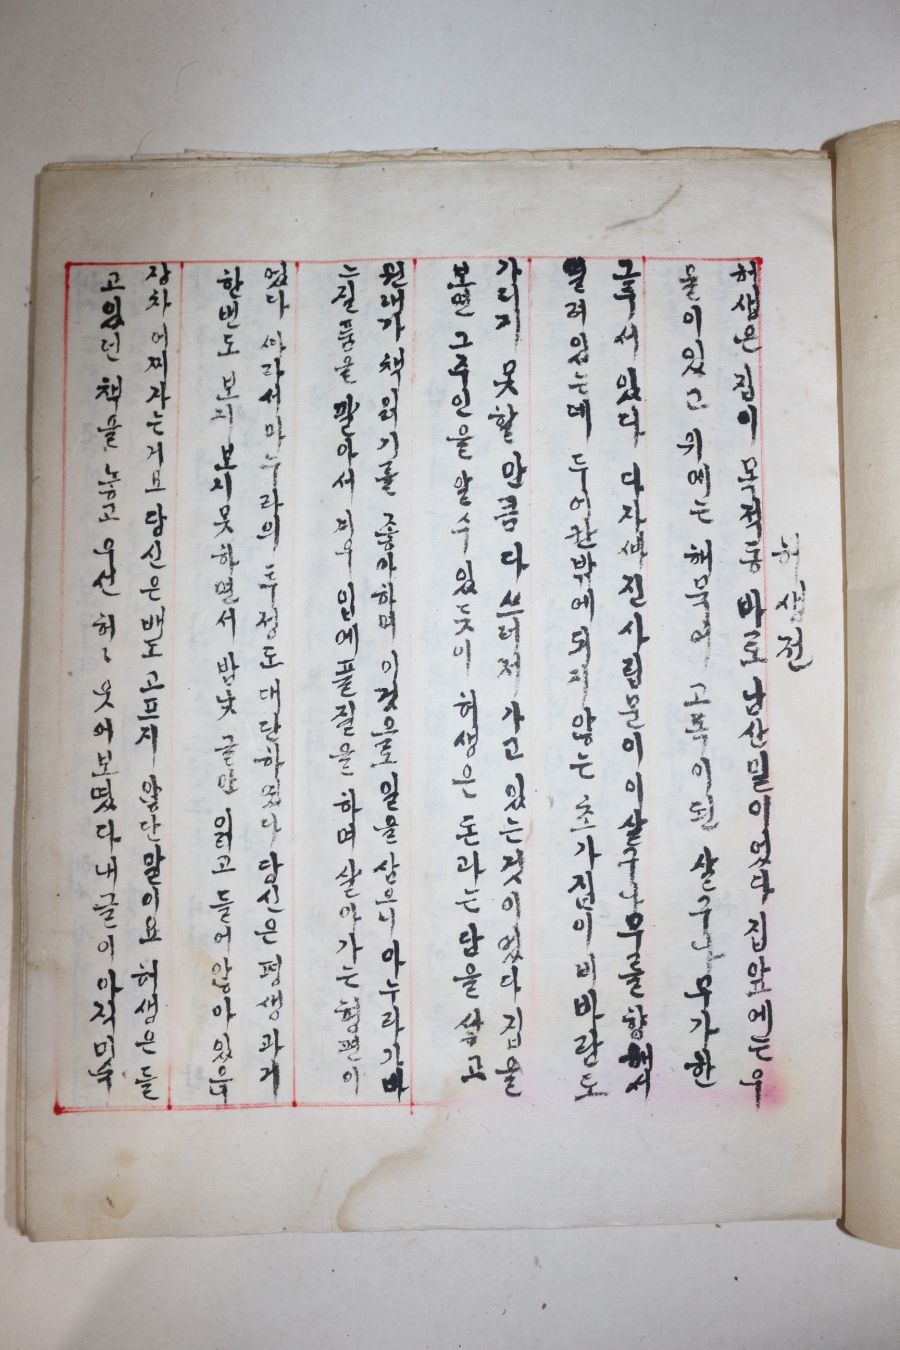 허생전
허생은 집이 묵적동 바로 남산밑이였다 집앞에는 우
물이있고 뒤에는 해묵은 고목이된 살구나무가 한
그루서 있다 다자색진 사립문이 이살구나무를 향해서
열려있는데 두어칸밖에되지 않는 초가집이 비바람도
가리지 못할만큼 다쓰러저 가고 있는것이였다 집을
보면 그주인을 알수 있듯이 허생은 돈과는 담을 쌓고
원래가 책읽기를 좋아하며 이것으로 일을 삼으니 마누라가 바
느질품을 팔아서 겨우 입에풀칠을 하며 살아가는 형편이
였다 따라서 마누라의 투정도 대단하였다 당신은 평생 과거
한번도 보지 보지못하면서 밤낮 글만 읽고 들어앉아 있으니
장차 어찌자는거요 당신은 배도 고프지 않단말이요 허생은 들
고있던 책을 놓고 우선 허〻 웃어보였다 내글이 아직미숙